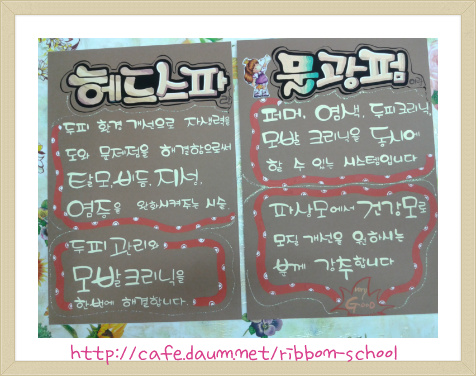 헤드스파
두피 환경 개선으로 자생력을
도와 문제점을 해결함으로써
탈모, 비듬, 지성,
염증을 완화시켜주는 시술.
두피 관리와
모발크리닉을
한번에 해결합니다.
물광펌
퍼머, 염색, 두피크리닉,
모발 크리닉을 동시에
할 수 있는 시스템입니다
파상모에서 건강모로
모질 개선을 원하시는
분께 강추합니다
http://cafe.daum.net/ribbom-school